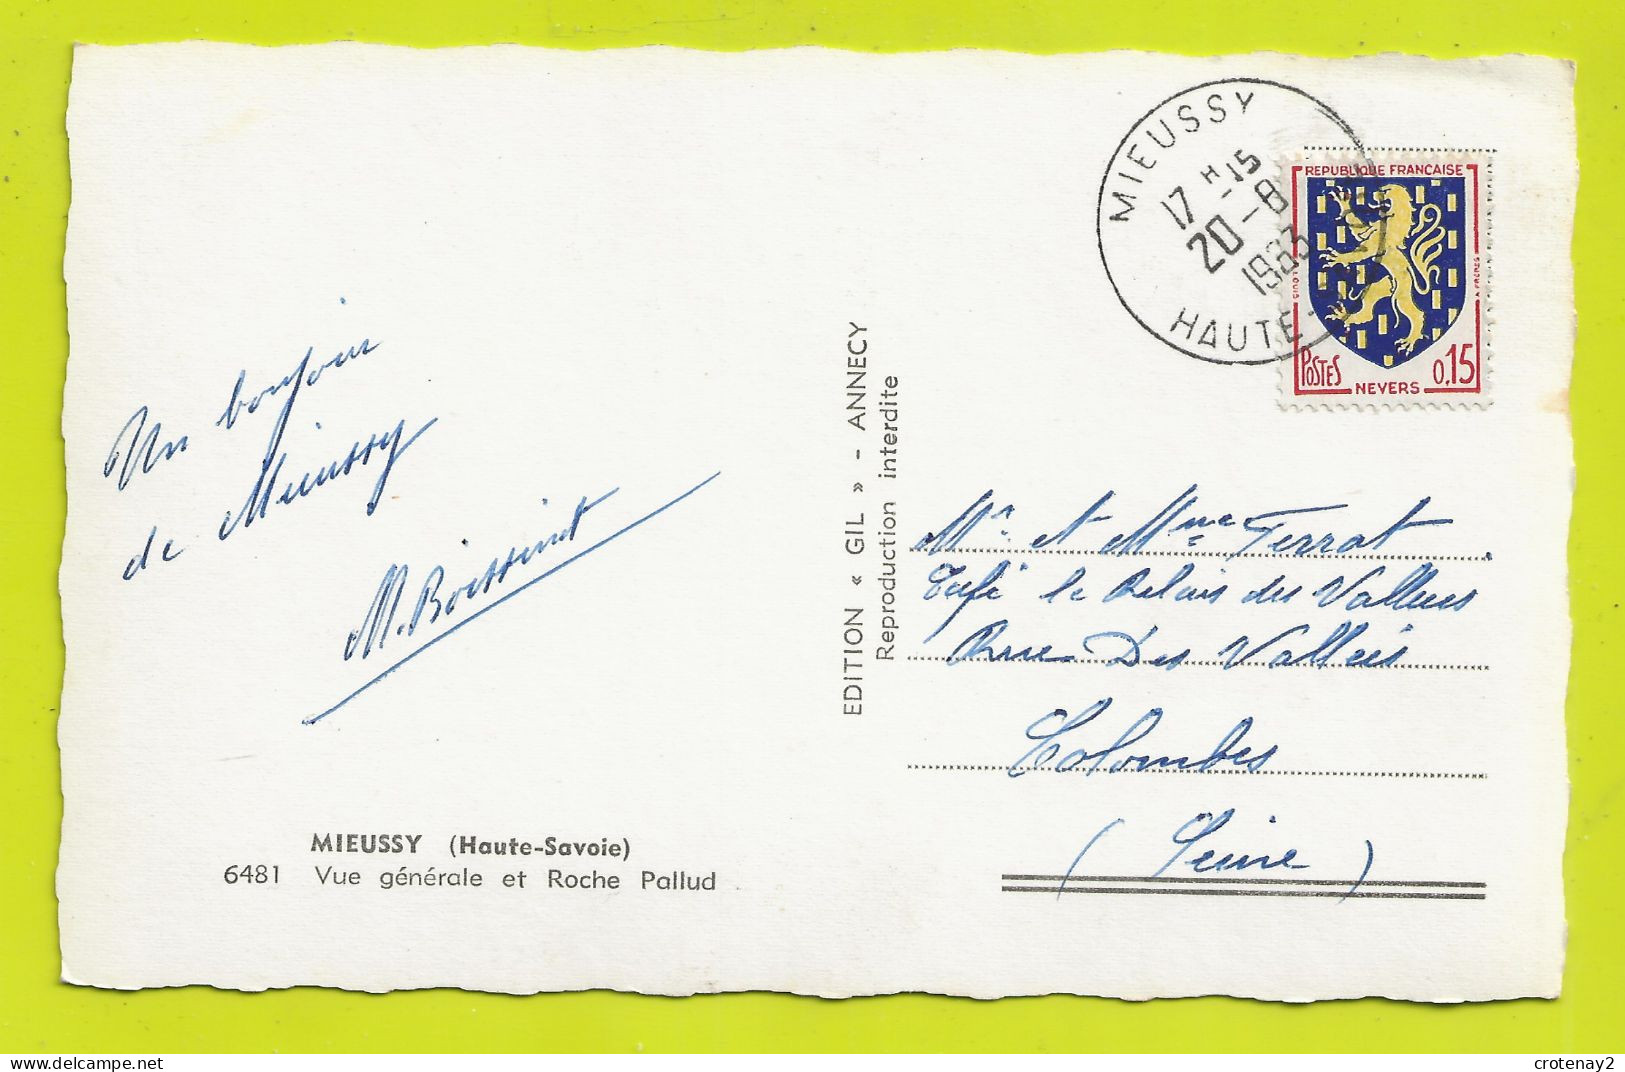 MIEUSSY
17 H -15
20 -8
1963
HAUTE-
REPUBLIQUE FRANÇAISE
POSTES
NEVERS
0,15
Un bonjour
de Mieussy
M. Boissinot
EDITION « GIL » - ANNECY
Reproduction interdite
Mr et Mme Terrat
Café le Relais des Vallées
Rue Des Vallées
Colombes
(Seine)
MIEUSSY (Haute-Savoie)
6481 Vue générale et Roche Pallud
crotenay2